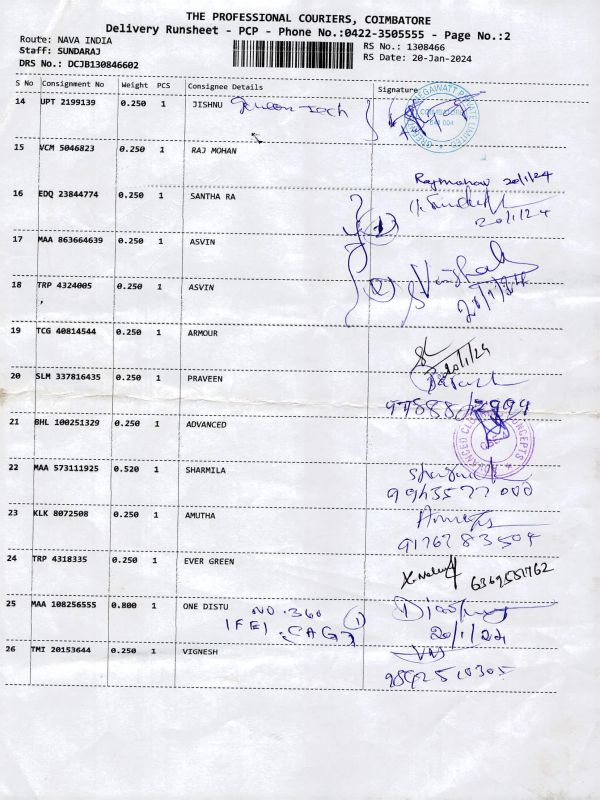 THE PROFESSIONAL COURIERS, COIMBATORE
Delivery Runsheet - PCP - Phone No.:0422-3505555 - Page No.:2
Route: NAVA INDIA RS No.: 1308466
Staff: SUNDARAJ RS Date: 20-Jan-2024
DRS No.: DCJB130846602
S No Consignment No Weight PCS Consignee Details Signature
14 UPT 2199139 0.250 1 JISHNU
15 VCM 5046823 0.250 1 RAJ MOHAN
Rajmohan 20/1/24
16 EDQ 23844774 0.250 1 SANTHA RA
20/1/24
17 MAA 863664639 0.250 1 ASVIN
18 TRP 4324005 0.250 1 ASVIN
,
19 TCG 40814544 0.250 1 ARMOUR
20/1/24
20 SLM 337816435 0.250 1 PRAVEEN
21 BHL 100251329 0.250 1 ADVANCED
22 MAA 573111925 0.520 1 SHARMILA
9943577000
23 KLK 8072508 0.250 1 AMUTHA
9176783504
24 TRP 4318335 0.250 1 EVER GREEN
25 MAA 108256555 0.800 1 ONE DISTU NO.360
20/1/24
26 TMI 20153644 0.250 1 VIGNESH
9842510305